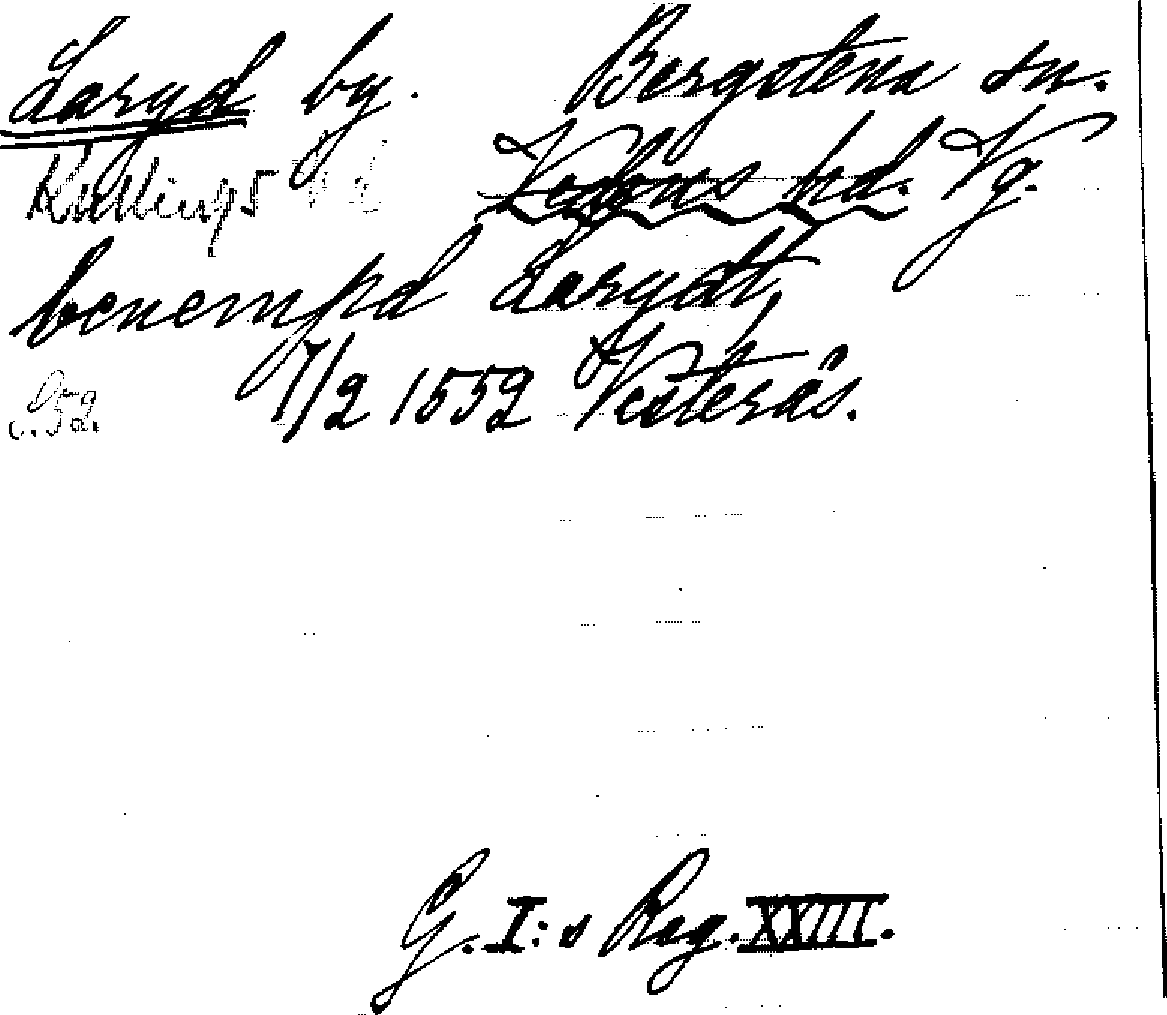 Laryd by. Bergstena sn.
Kullings Vedens hd. Vg.
benempd Larydt,
s. 52. 7/2 1552 Vesterås.
G. I:s Reg. XXIII.